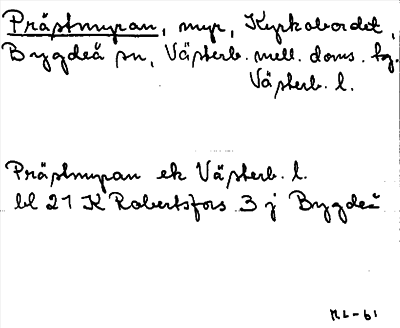 Prästmyran, myr, Kyrkobordet,
Bygdeå sn, Västerb. mell. doms. tg.
Västerb. l.
Prästmyran ek Västerb. l.
bl 21 K Robertsfors 3 j Bygdeå
RL-61